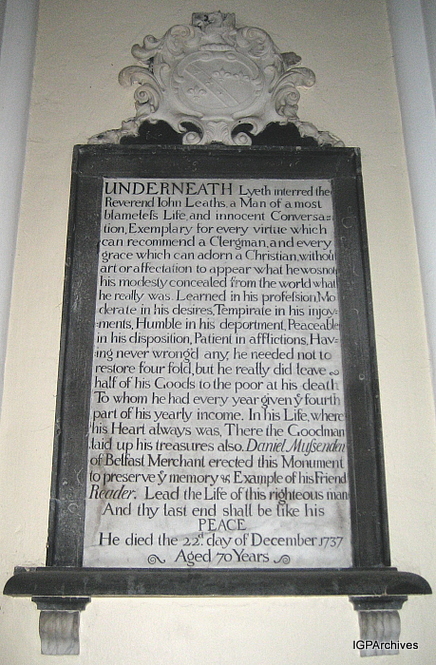 UNDERNEATH Lyeth interred the
Reverend Iohn Leaths, a Man of a most
blameleſs Life, and innocent Conversa=
tion, Exemplary for every virtue which
can recommend a Clergman, and every
grace which can adorn a Christian, without
art or affectation to appear what he was not
his modesty concealed from the world what
he really was. Learned in his profeſsion, Mo
derate in his desires, Tempirate in his injoy=
=ments, Humble in his deportment, Peaceable
in his disposition, Patient in afflictions, Hav=
ing never wrong'd any, he needed not to
restore four fold, but he really did leave
half of his Goods to the poor at his death
To whom he had every year given ẙ fourth
part of his yearly income. In his Life, where
his Heart always was, There the Goodman
laid up his treasures also. Daniel Muſsenden
of Belfast Merchant erected this Monument
to preserve ẙ memory & Example of his Friend
Reader. Lead the Life of this righteous man
And thy last end shall be like his
PEACE
He died the 22d. day of December 1737
Aged 70 Years
IGPArchives